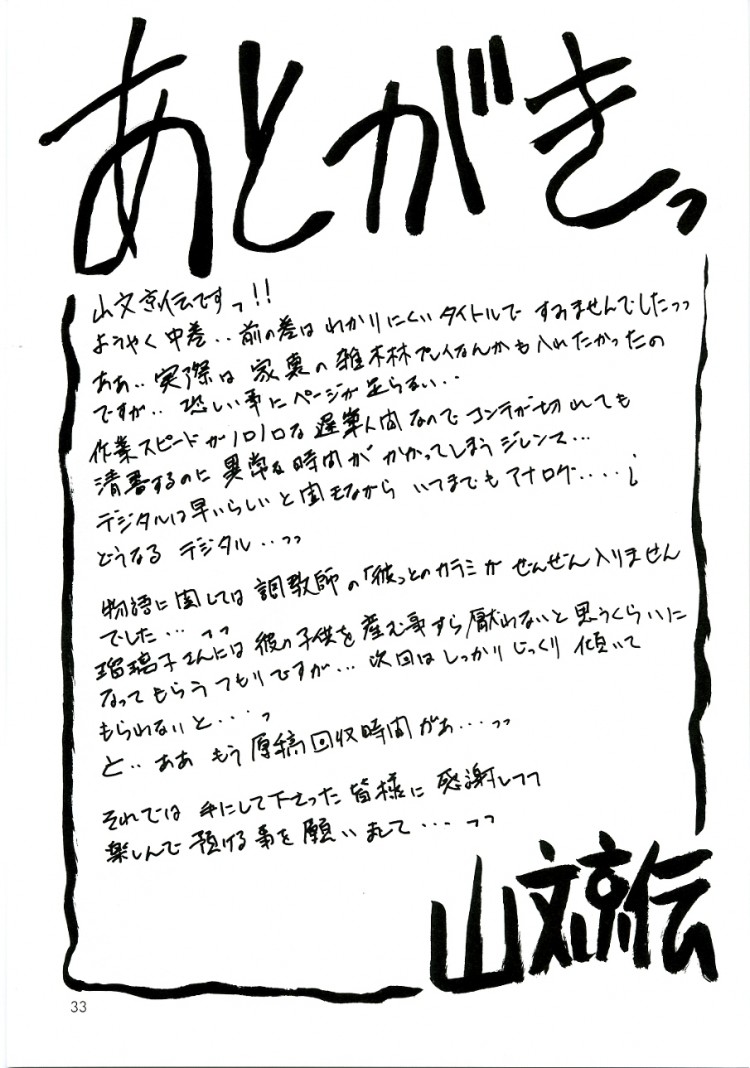 あとがきっ
山文京伝ですっ!!
ようやく中巻‥前の巻はわかりにくいタイトルですみませんでしたっっ
ああ‥実際は家裏の雑木林プレイなんかも入れたかったの
ですが‥恐しい事にページが足らない‥
作業スピードがノロノロな遅筆人間なのでコンテが切れても
清書するのに異常な時間がかかってしまうジレンマ…
デジタルは早いらしいと聞きながらいつまでもアナログ‥‥¿
どうなるデジタル‥っっ
物語に関しては調教師の「彼」とのカラミがぜんぜん入りません
でした…っっ
瑠璃子さんには彼の子供を産む事すら厭わないと思うくらいに
なってもらうつもりですが…次回はしっかりじっくり傾いて
もらわないと…っ
と‥ああもう原稿回収時間がぁ…っっ
それでは手にして下さった皆様に感謝しつつ
楽しんで頂ける事を願いまして…っっ
山文京伝
33